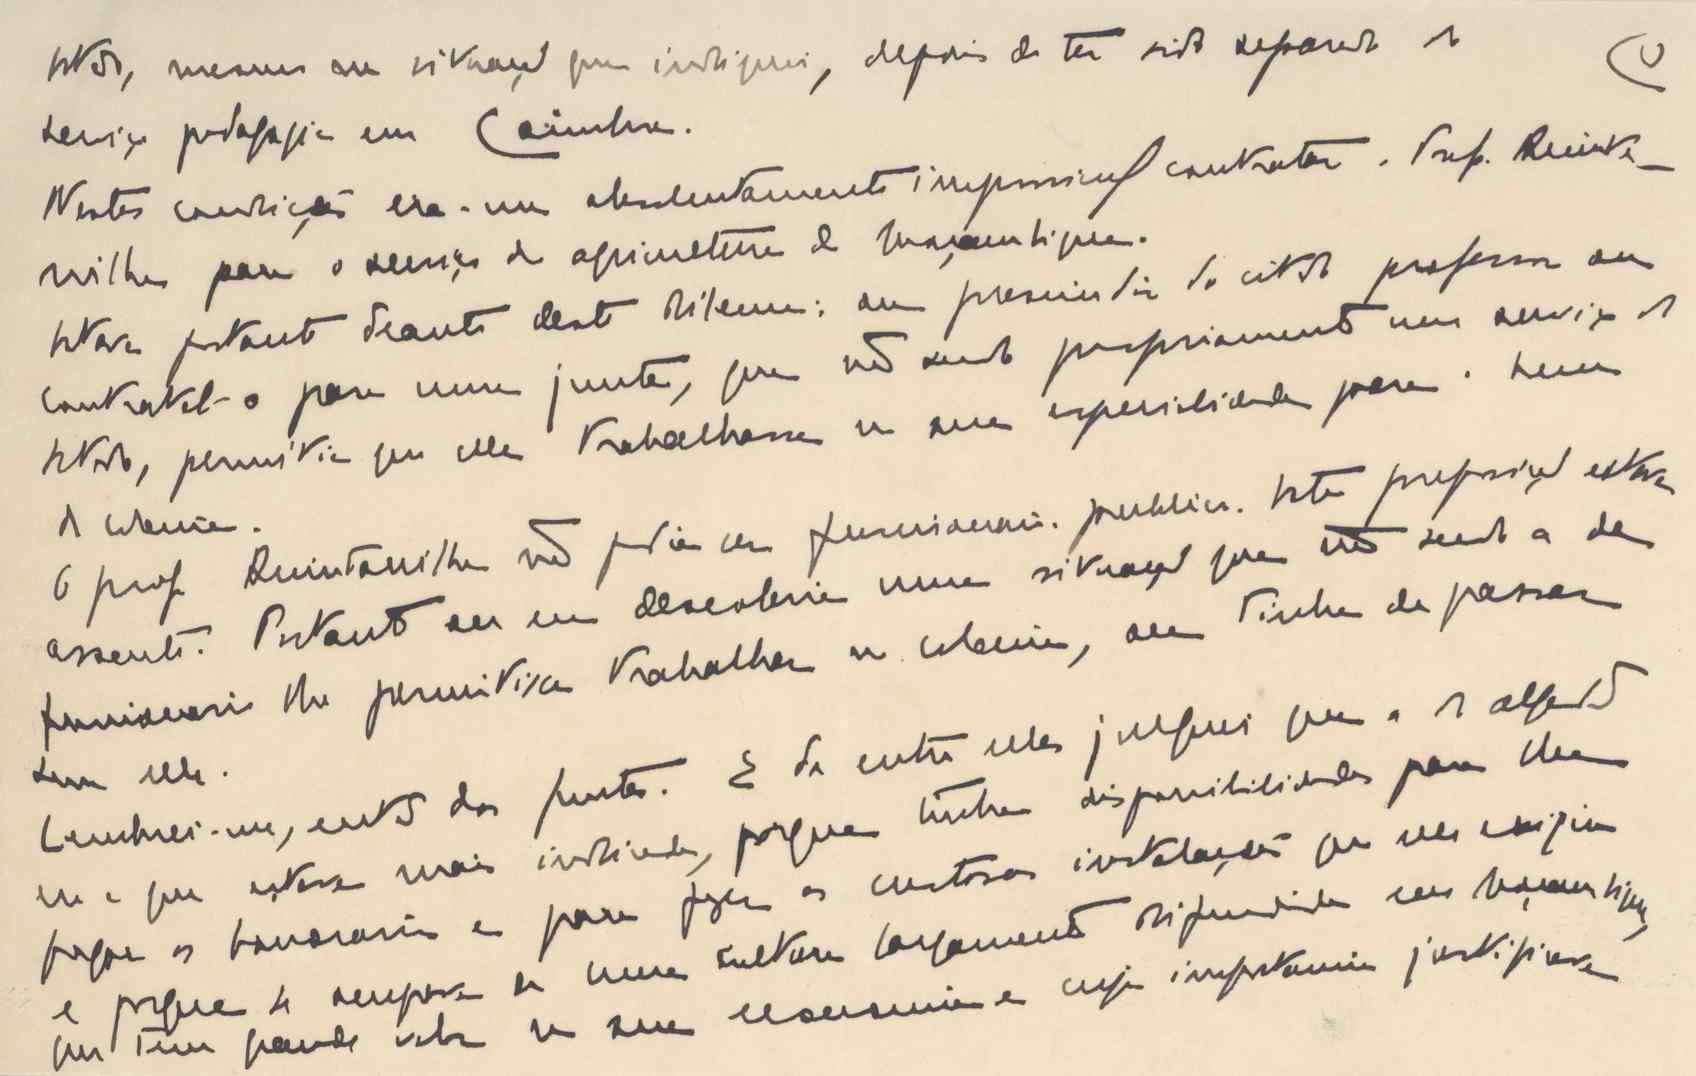 Estado, mesmo na situação que indiquei, depois de ter sido separado do
serviço pedagogico em Coimbra.
Nestas condições era-me absolutamente impossivel contratar o Prof. Quinta-
nilha para o serviço de agricultura de Moçambique.
Estava portanto deante deste dilema: ou prescindir do citado professor ou
contratal-o para uma junta, que não sendo propriamente um serviço do
Estado, permitia que elle trabalhasse na sua especialidade para o bem
da colonia.
O prof. Quintanilha não podia ser funcionario publico. Esta proposição estava
assente. Portanto ou eu descobria uma situação que não sendo a de
funcionario lhe permitisse trabalhar na colonia, ou tinha de passar
sem elle.
Lembrei-me, então das juntas. E de entre ellas julguei que a do algodão
era a que estava mais indicada, porque tinha disponibilidades para lhe
pagar os honorarios e para fazer as custosas instalações que elle exigia
e porque se ocupava de uma cultura largamente difundida em Moçambique,
que tem grande valor na sua economia e cuja importancia justificava